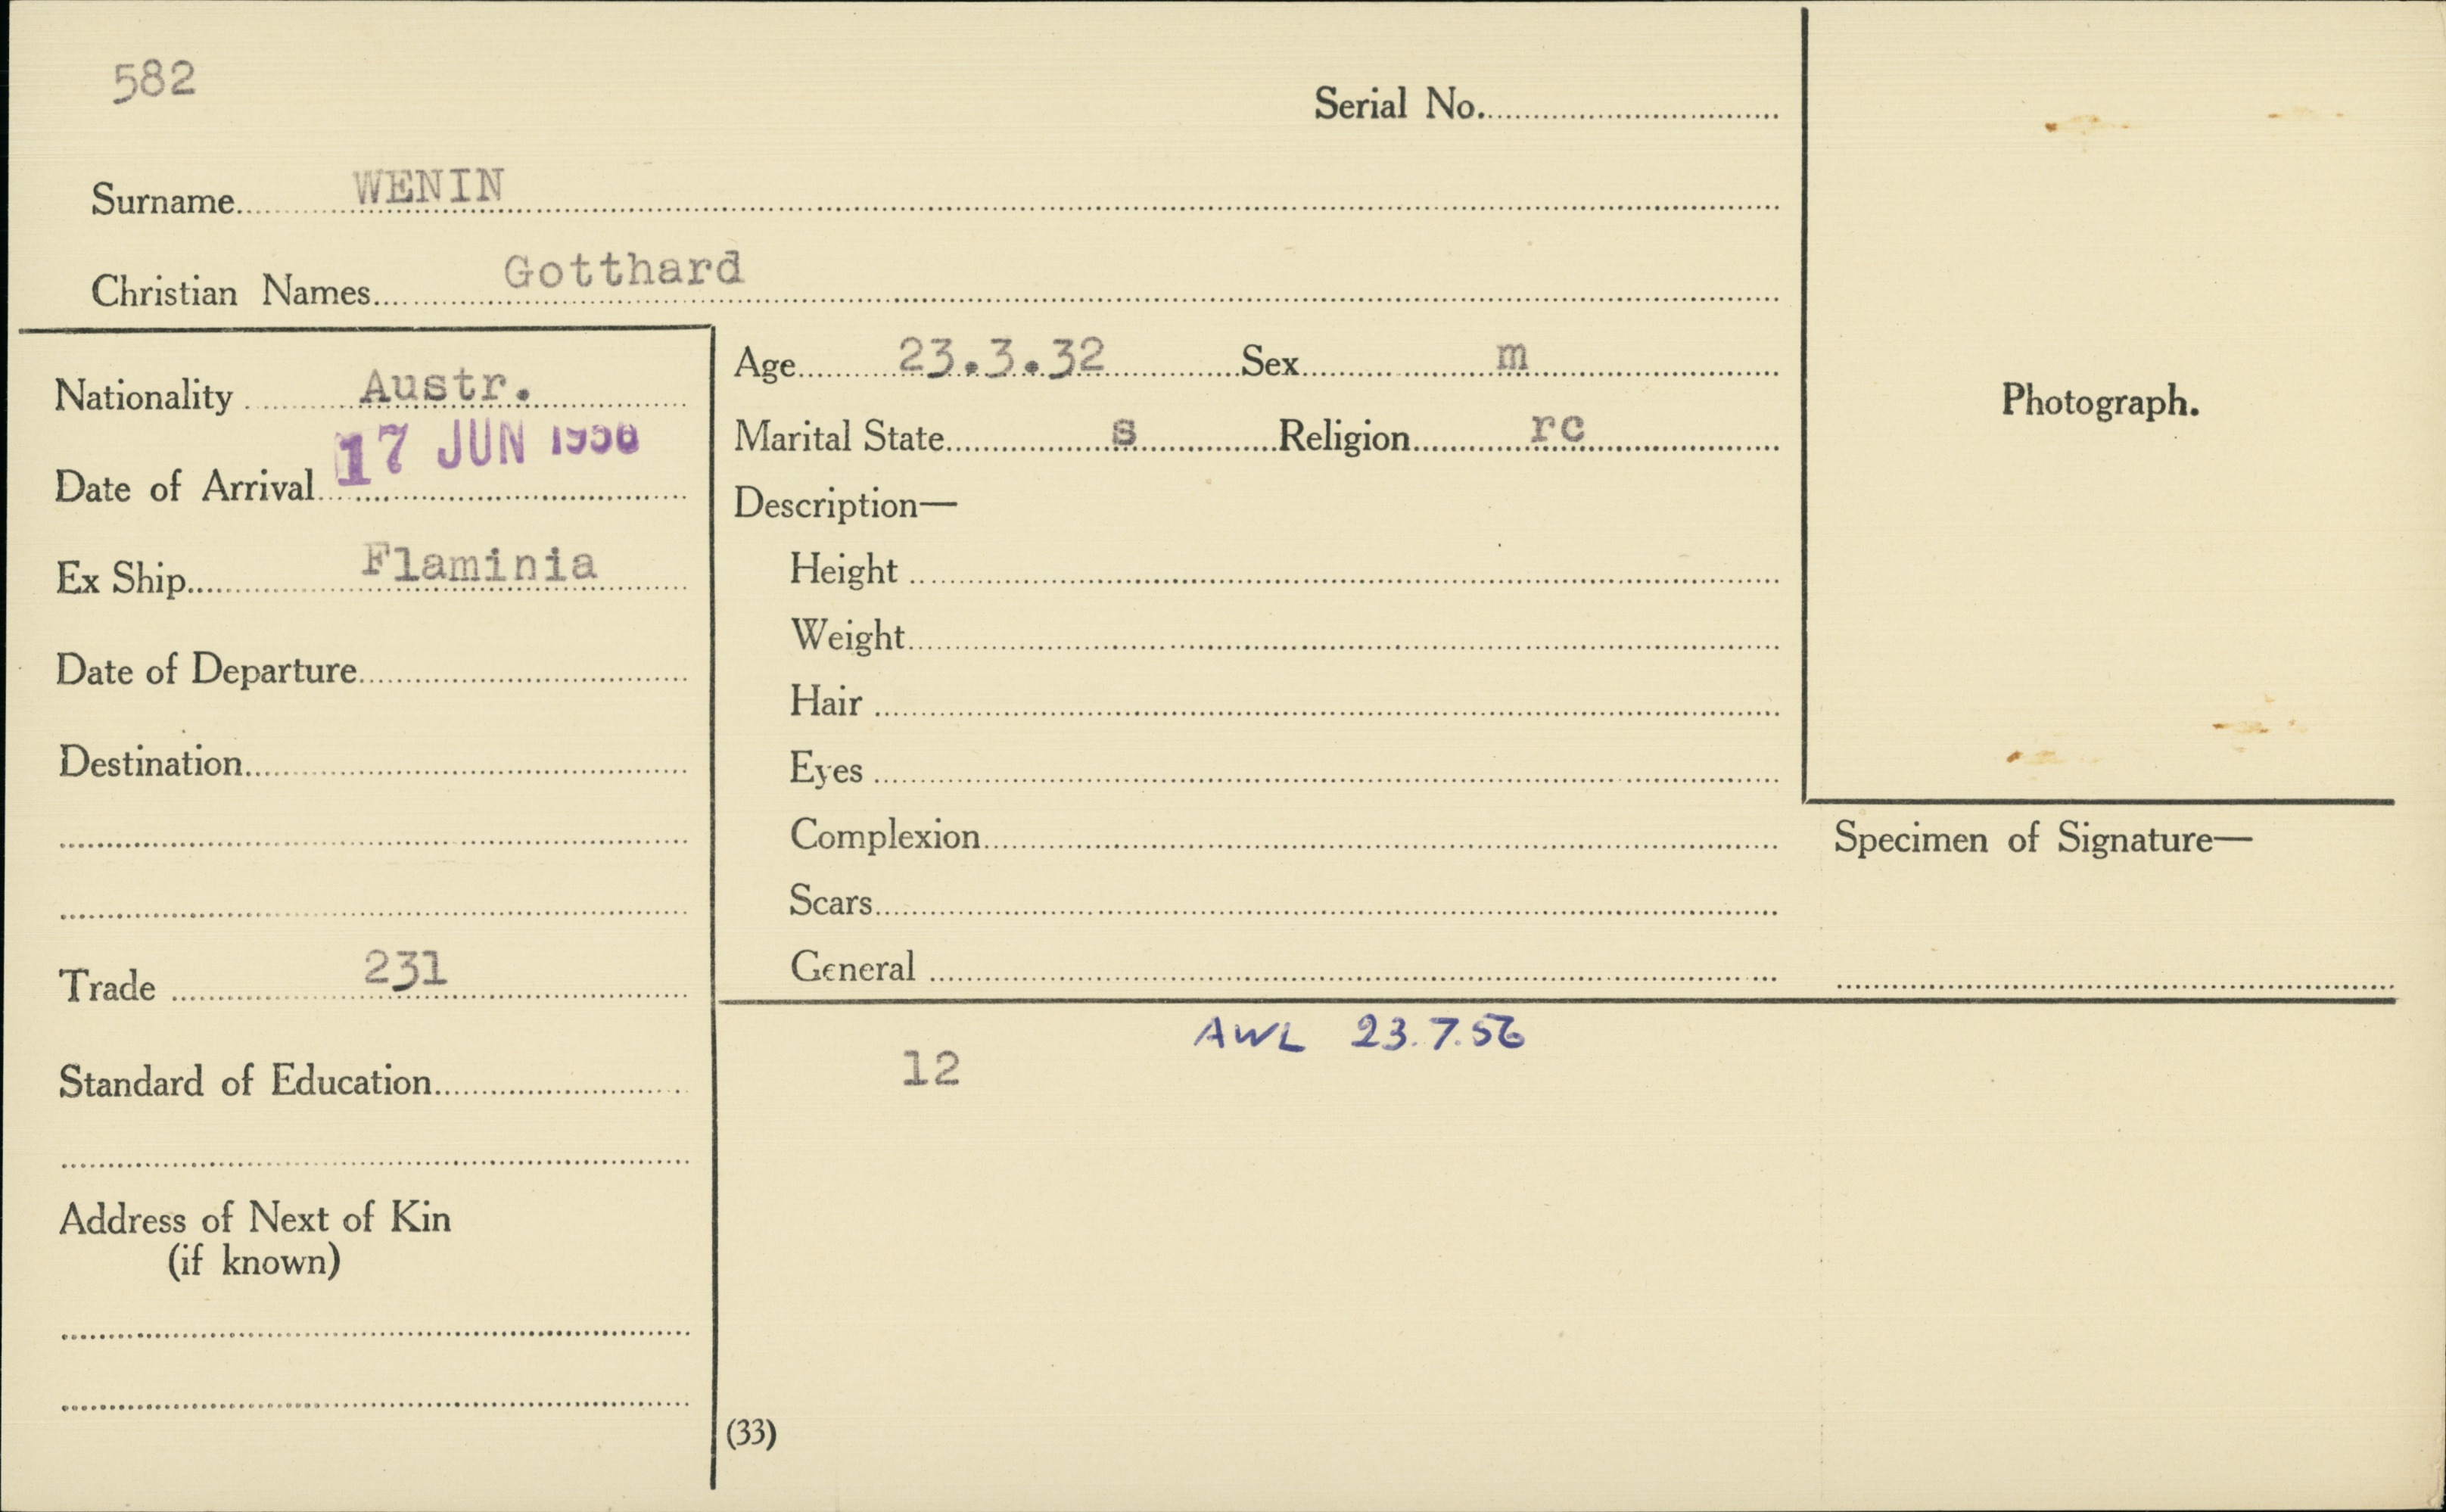 582
Serial No.
Surname WENIN
Christian Names Gotthard
Nationality Austr.
Date of Arrival 17 JUN 1956
Ex Ship Flaminia
Date of Departure
Destination
Trade 231
Standard of Education
Address of Next of Kin
(if known)
Age 23.3.32 Sex m
Marital State s Religion rc
Description—
Height
Weight
Hair
Eyes
Complexion
Scars
General
Photograph.
Specimen of Signature—
AWL 23.7.56
12
(33)